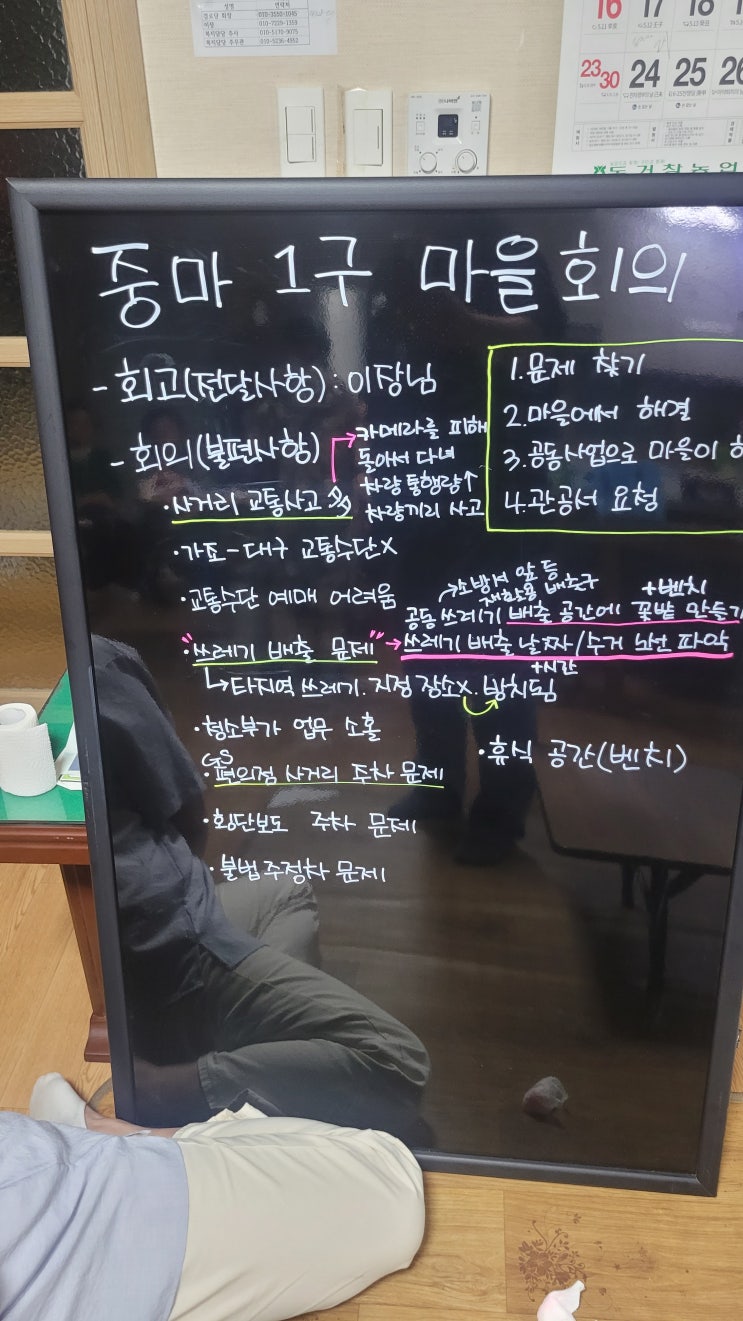 성명 연락처
경로당 회장 010-3550-1045
이장
복지담당 주사 010-5170-9075
복지담당 주무관 010-5236-4952
16 17 18
23 30 24 25 26
중마 1구 마을회의
- 회고(전달사항) : 이장님
- 회의(불편사항)
카메라를 피해
돌아서 다녀
차량 통행량↑
차량끼리 사고
1. 문제 찾기
2. 마을에서 해결
3. 공동사업으로 마을이
4. 관공서 요청
· 사거리 교통사고 多
· 가조 - 대구 교통수단 X
· 교통수단 예매 어려움
→ 소방서 앞 등
재활용 배출구
+벤치
공동 쓰레기 배출 공간에 꽃밭 만들기
· "쓰레기 배출 문제" → 쓰레기 배출 날짜/수거 노선 파악
+시간
↳ 타지역 쓰레기. 지정 장소X. 방치됨
· 청소부가 업무 소홀
· 휴식 공간(벤치)
GS
· 편의점 사거리 주차 문제
· 횡단보도 주차 문제
· 불법주정차 문제